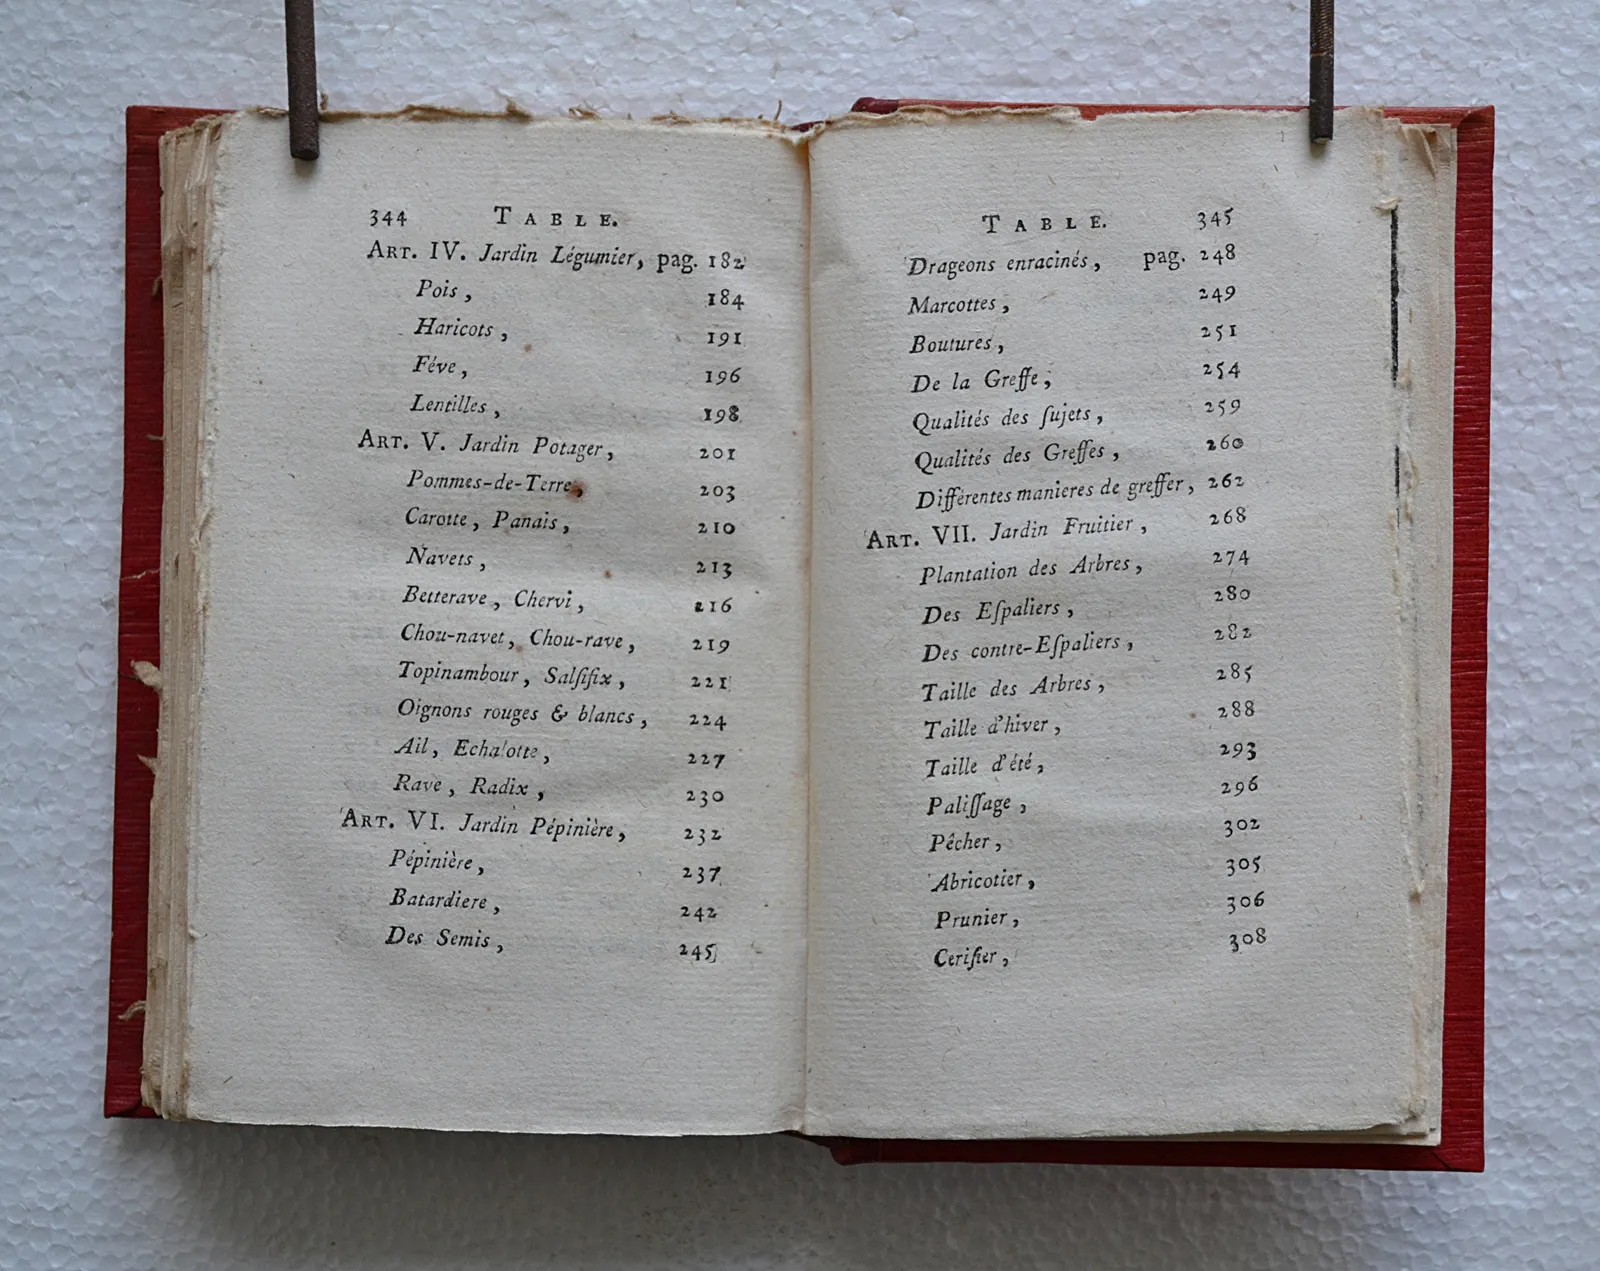 344 TABLE.
ART. IV. Jardin Légumier, pag. 182
Pois, 184
Haricots, 191
Féve, 196
Lentilles, 198
ART. V. Jardin Potager, 201
Pommes-de-Terre, 203
Carotte, Panais, 210
Navets, 213
Betterave, Chervi, 216
Chou-navet, Chou-rave, 219
Topinambour, Salſifix, 221
Oignons rouges & blancs, 224
Ail, Echalotte, 227
Rave, Radix, 230
ART. VI. Jardin Pépinière, 232
Pépinière, 237
Batardiere, 242
Des Semis, 245
TABLE. 345
Drageons enracinés, pag. 248
Marcottes, 249
Boutures, 251
De la Greffe, 254
Qualités des ſujets, 259
Qualités des Greffes, 260
Différentes manieres de greffer, 262
ART. VII. Jardin Fruitier, 268
Plantation des Arbres, 274
Des Eſpaliers, 280
Des contre-Eſpaliers, 282
Taille des Arbres, 285
Taille d'hiver, 288
Taille d'été, 293
Paliſſage, 296
Pêcher, 302
Abricotier, 305
Prunier, 306
Ceriſier, 308